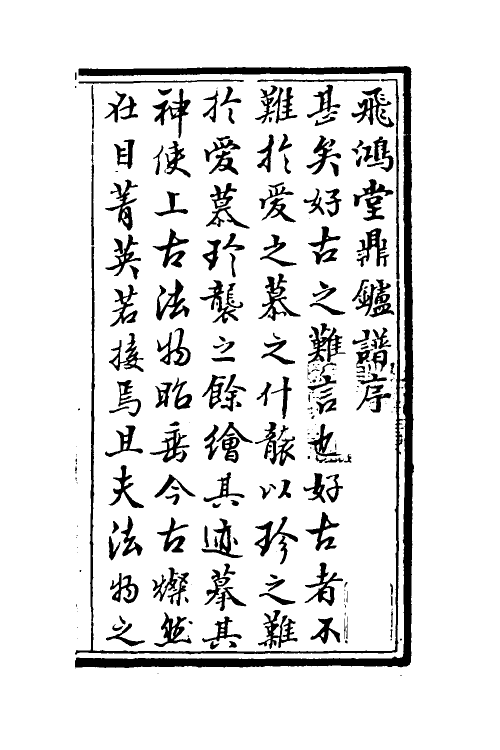 飛鴻堂鼎鑪譜序
甚矣好古之難言也好古者不
難於愛之慕之什襲以珍之難
於愛慕珍襲之餘繪其迹摹其
神使上古法物昭垂今古燦然
在目菁英若接焉且夫法物之